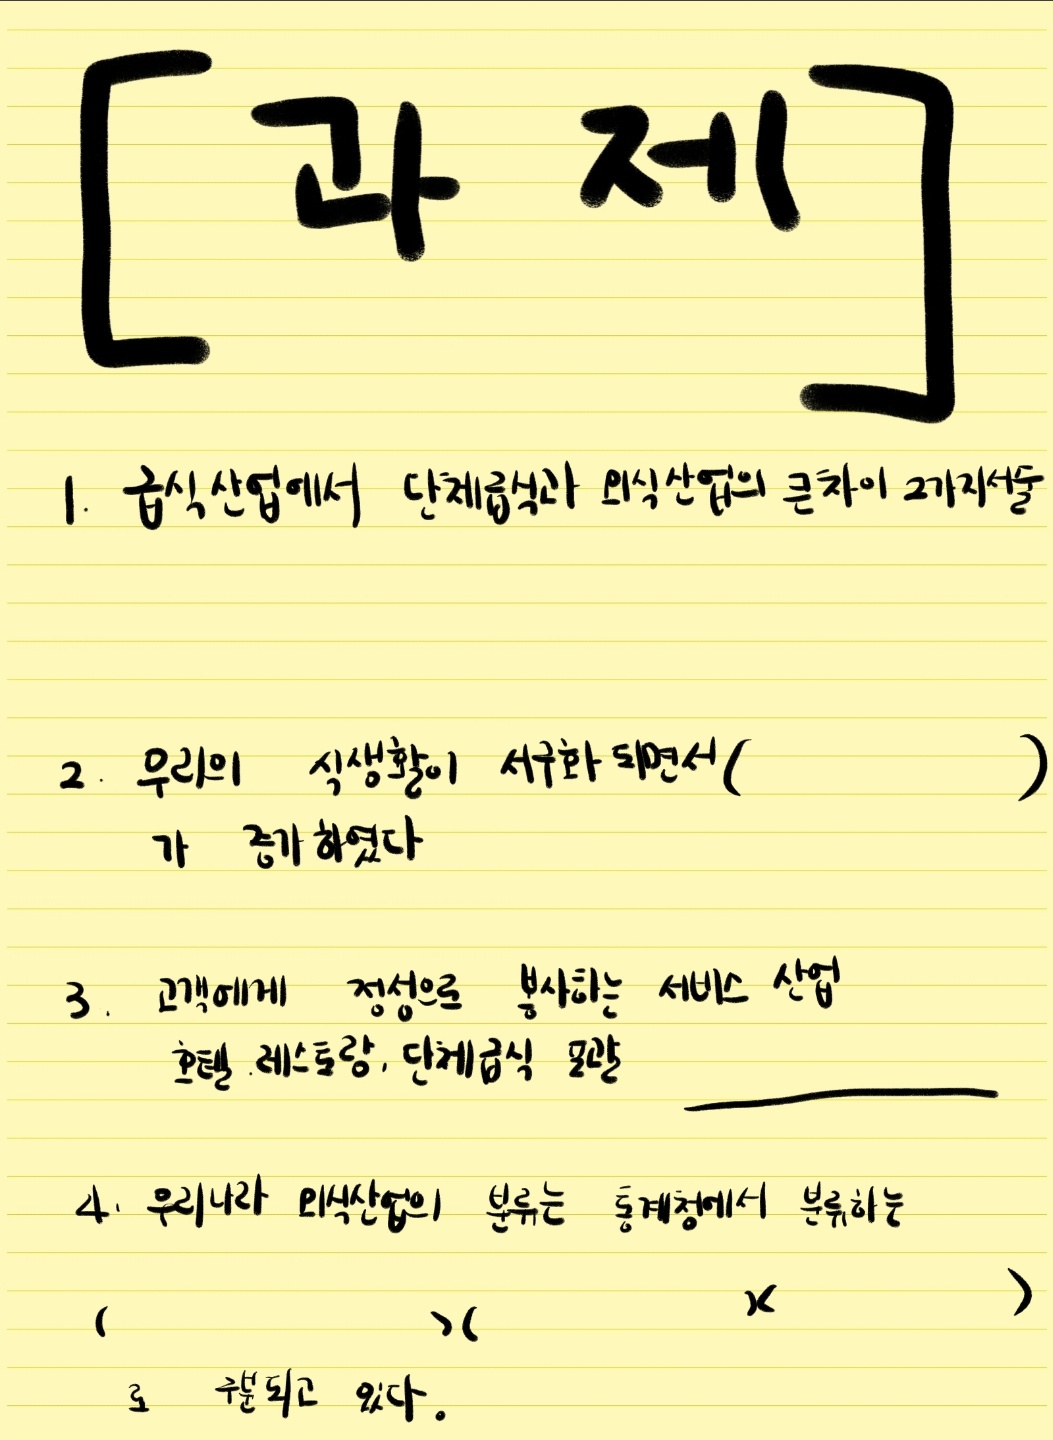 [과 제]
1. 급식산업에서 단체급식과 외식산업의 큰차이 2가지서술
2. 우리의 식생활이 서구화 되면서 ( )
가 증가하였다
3. 고객에게 정성으로 봉사하는 서비스 산업
호텔.레스토랑, 단체급식 포괄
4. 우리나라 외식산업의 분류는 통계청에서 분류하는
( )( )( )
로 구분되고 있다.